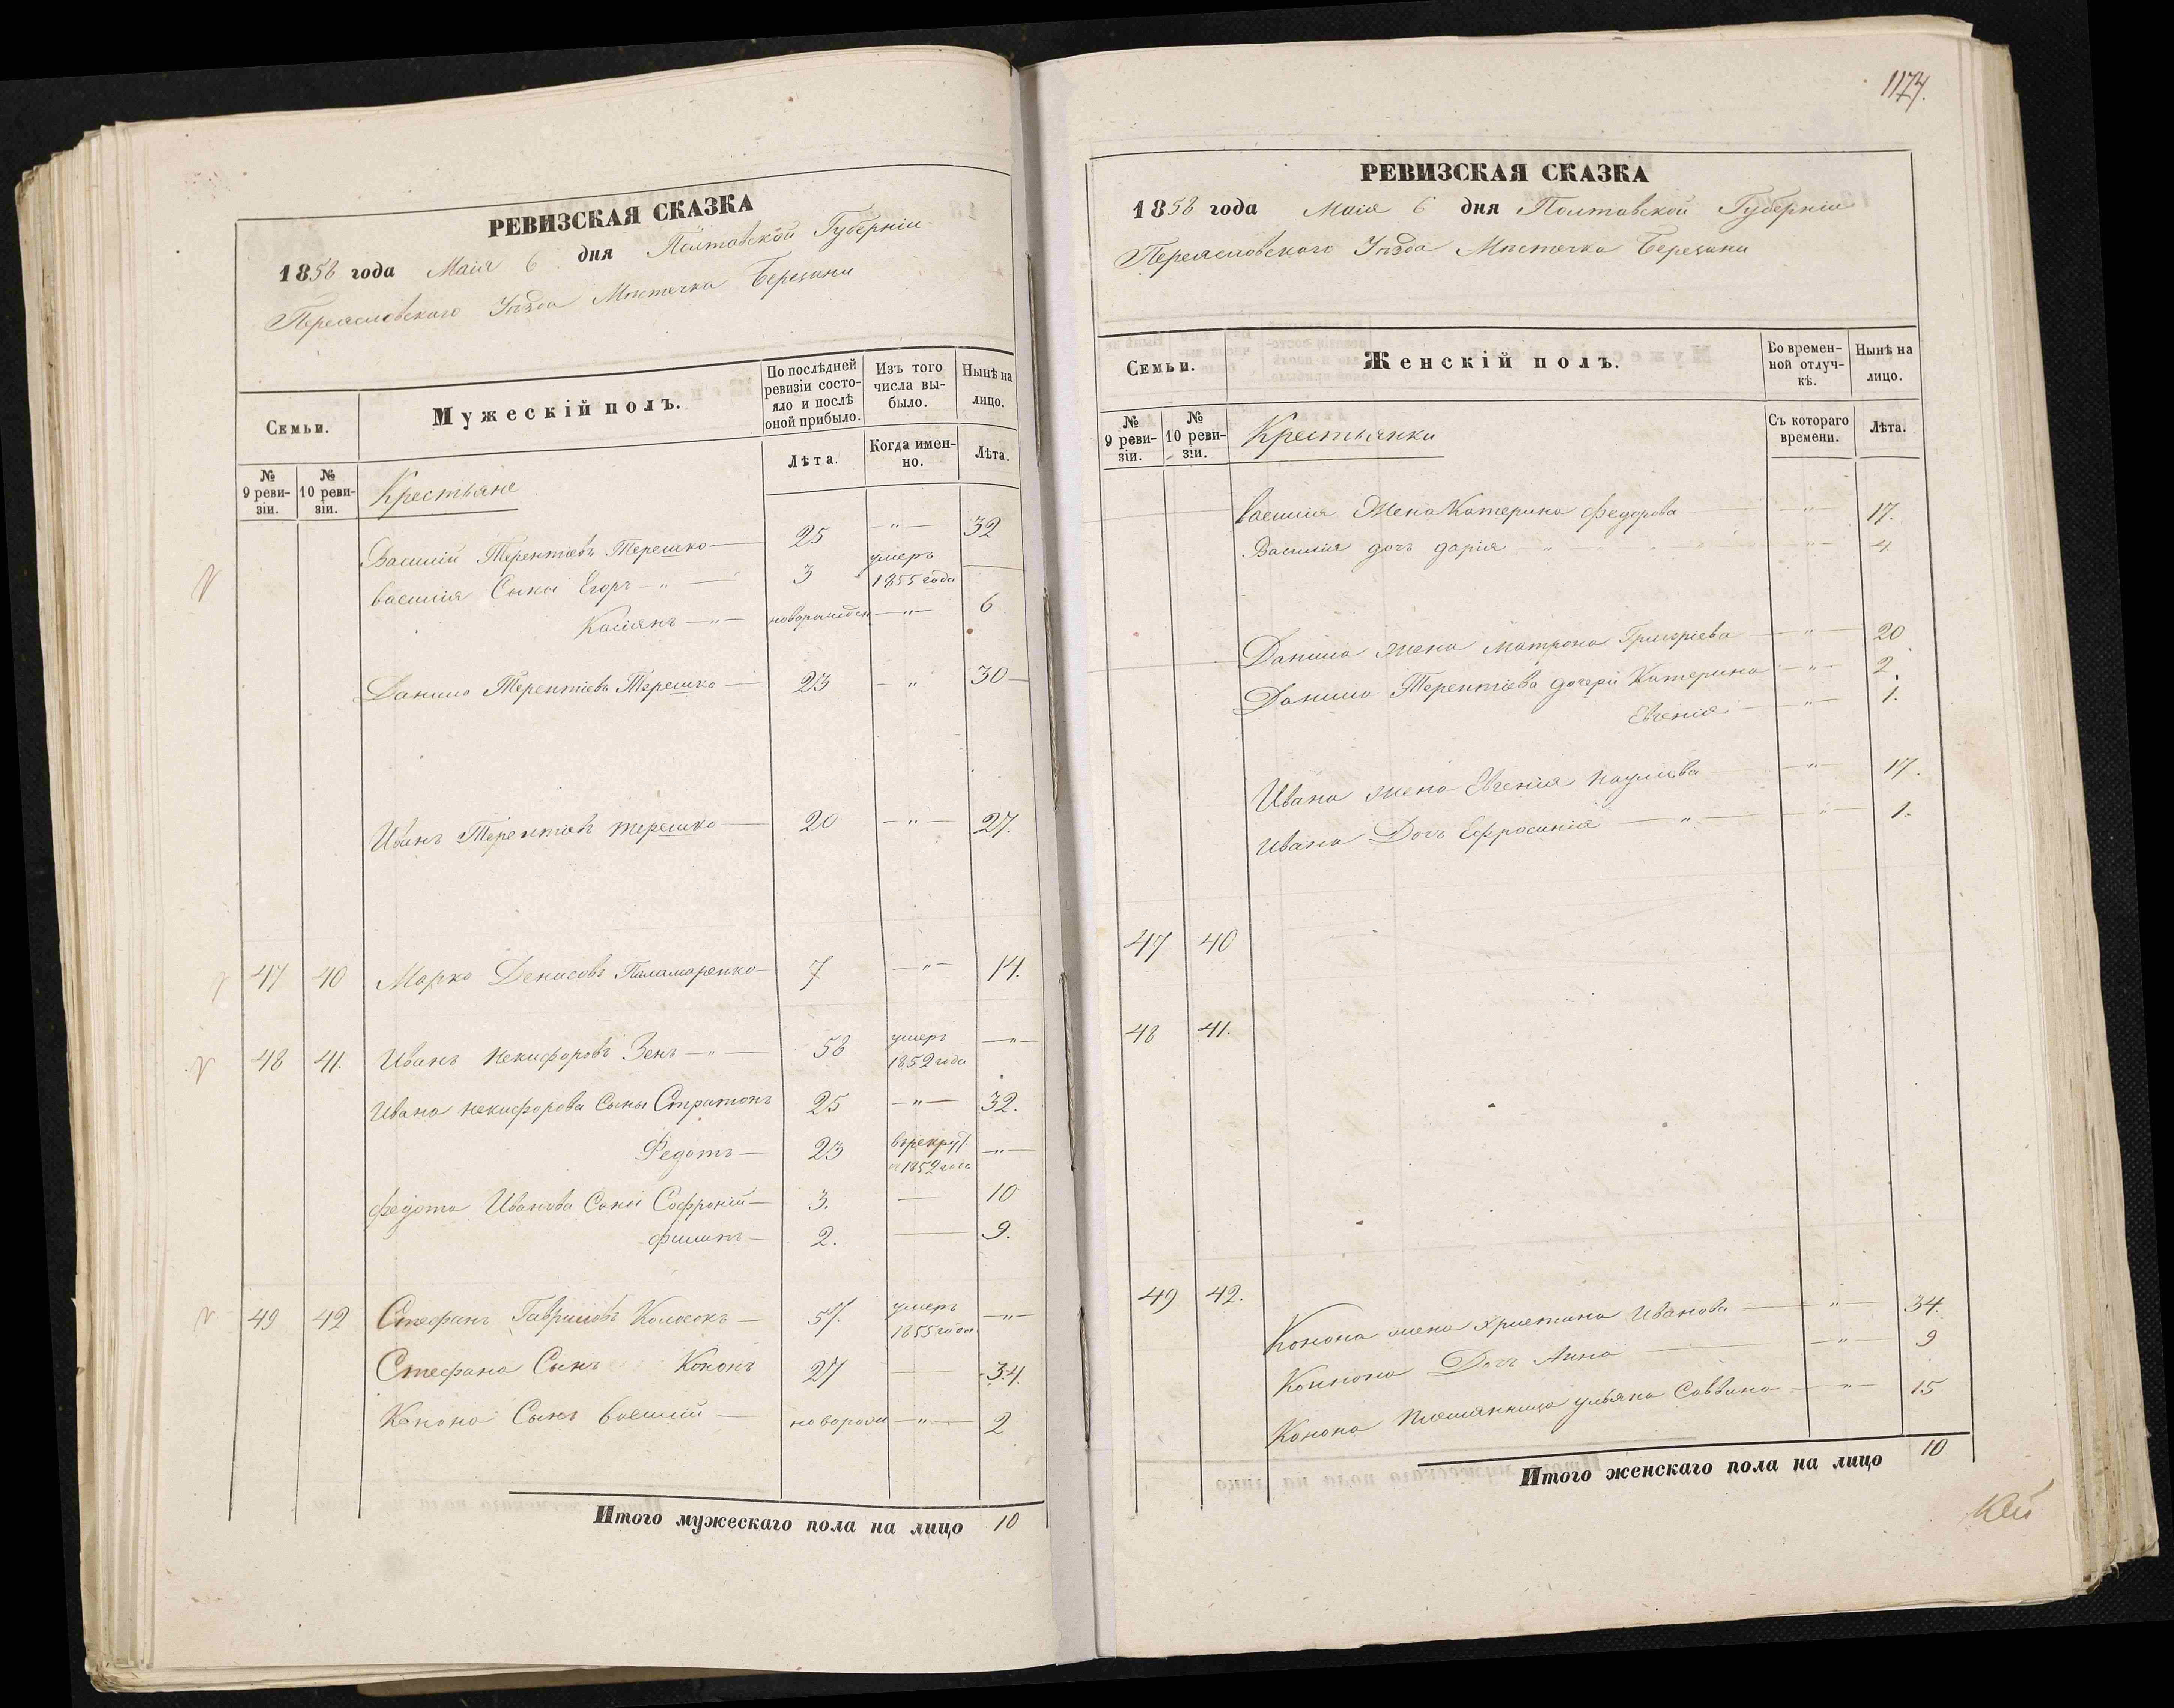 РЕВИЗСКАЯ СКАЗКА
1858 года Маія 6 дня Полтавской Губерніи
Переясловскаго Уѣзда Мѣстечка Березани
Семьи.
Мужескій полъ.
По послѣдней ревизіи состояло и послѣ оной прибыло.
Изъ того числа выбыло.
Нынѣ на лицо.
№ 9 ревизіи.
№ 10 ревизіи.
Крестьяне
Лѣта.
Когда именно.
Лѣта.
Василій Терентіевъ Терешко — 25 — " — 32
Василія Сыны Егоръ — " — 3 умеръ 1855 года —
Касіянъ — " — новорожден — " — 6
Данило Терентіевъ Терешко — 23 — " 30 —
Иванъ Терентіевъ Терешко — 20 — " — 27.
47 40 Марко Денисовъ Паламаренко — 7 — " — 14.
48 41. Иванъ Некифоровъ Зенъ — " — 58 умеръ 1852 года — " —
Ивана Некифорова Сыны Стратонъ 25 — " — 32.
Федотъ — 23 въ рекрут. с 1852 года — " —
Федота Иванова Сыны Софроній — 3. — 10
Филипъ — 2. — 9.
49 42 Стефанъ Гавриловъ Колосокъ — 57. умеръ 1855 года — " —
Стефана Сынъ Кононъ 27 — 34.
Конона Сынъ Василій — новорож — " — 2
Итого мужескаго пола на лицо 10
1174.
РЕВИЗСКАЯ СКАЗКА
1858 года Маія 6 дня Полтавской Губерніи
Переясловскаго Уѣзда Мѣстечка Березани
Семьи.
Женскій полъ.
Во временной отлучкѣ.
Нынѣ на лицо.
№ 9 ревизіи.
№ 10 ревизіи.
Крестьянки
Съ котораго времени.
Лѣта.
Василія Жена Катерина Федорова — " — 17.
Василія дочь Дарія " — " — 4
Данила жена Матрона Григоріева — " — 20
Данила Терентіева дочери Катерина — " — 2.
Евгенія — " — 1.
Ивана жена Евгенія Наумова — " — 17.
Ивана Дочь Ефросинія — " — " — 1.
47 40
48 41.
49 42.
Конона жена Христина Иванова — " — 34.
Коннона Дочь Анна — " — 9
Конона племянница Ульяна Саввина — " — 15
Итого женскаго пола на лицо 10